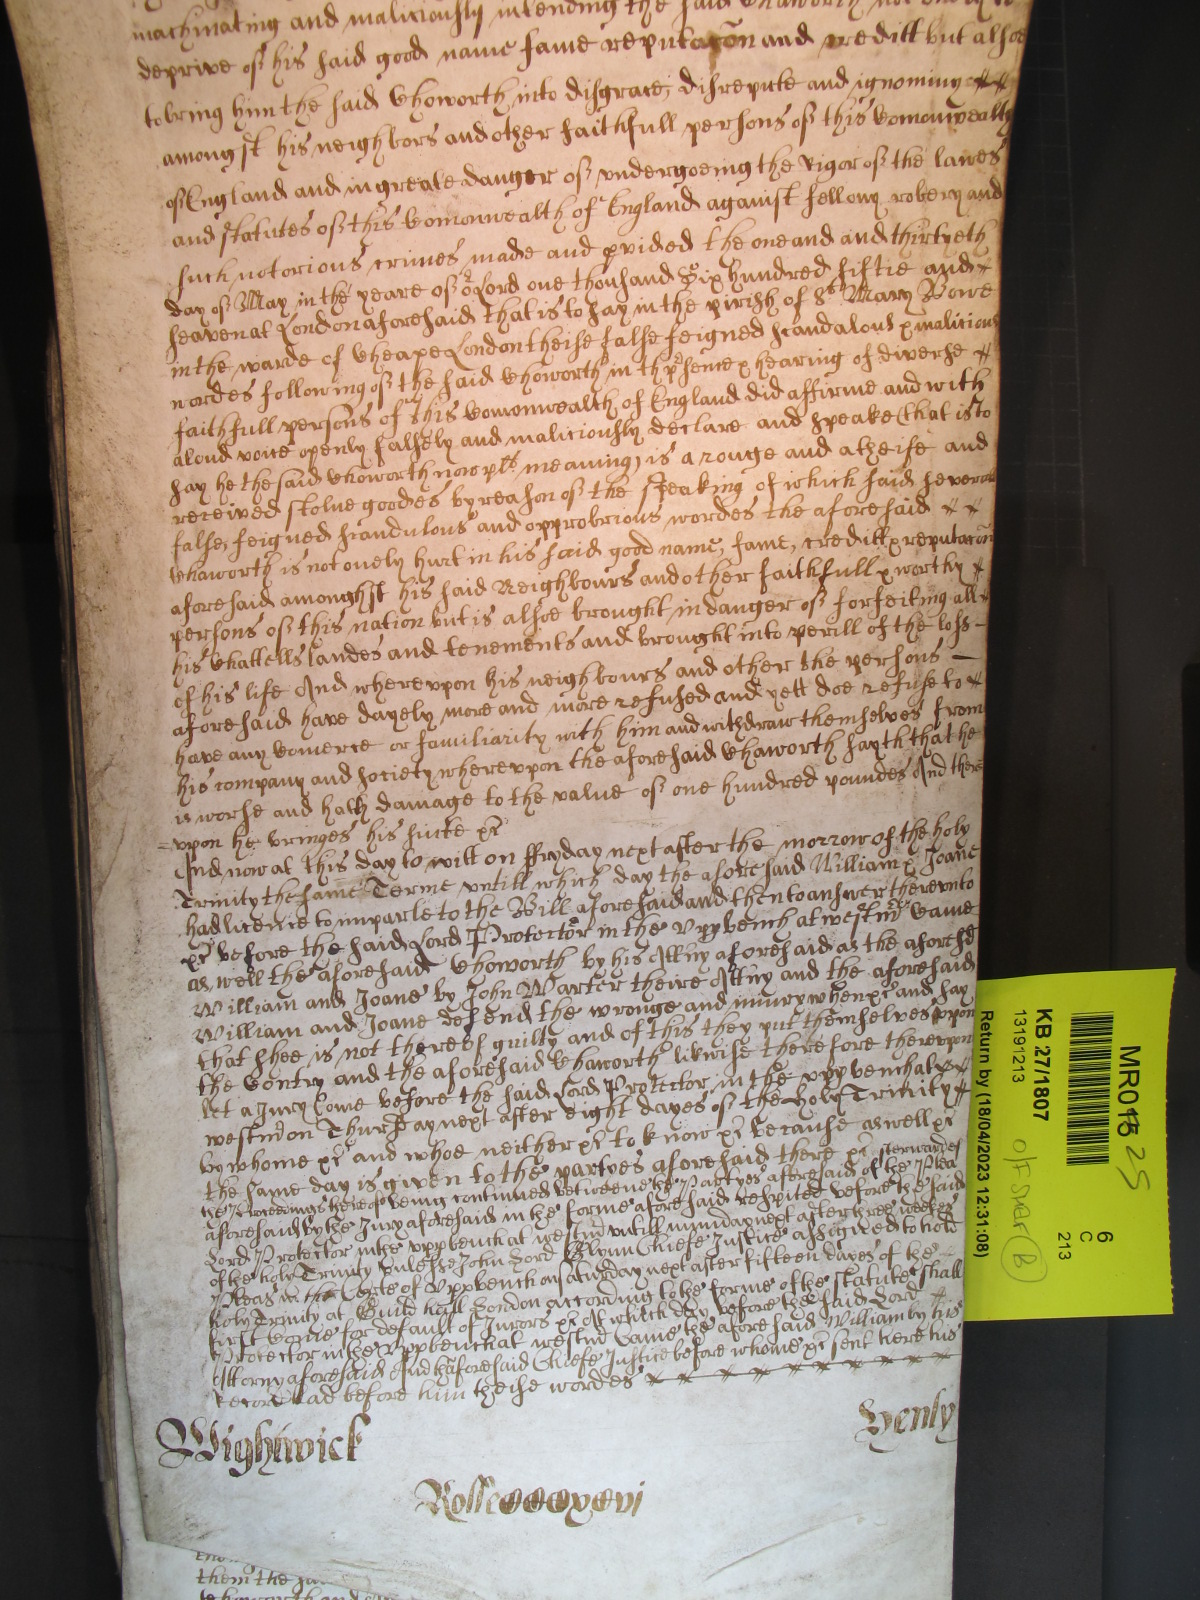 machinating and maliciously intending the said Chaworth not onely to
deprive of his said good name fame reputacõn and creditt but alsoe
to bring him the said Choworth into disgrace, disrepute and ignominy
amongst his neighbors and other faithfull persons of this Comonwealth
of England and in greate danger of undergoeing the rigor of the lawes
and statutes of this Comonwealth of England against fellony robery and
such notorious crimes made and pvided the one and and thirtyeth
day of May in the yeare of or Lord one thousand Six hundred fiftie and
seaven at London aforesaid that is to say in the pirish of St Mary Bowe
in the warde of Cheape London theise false feigned scandalous & malicious
wordes following of the said Choworth in th psence & hearing of diverse
faithfull persons of this Comonwealth of England did affirme and with
aloud voice openly falsely and maliciously declare and speake (that is to
say he the said Choworth now plt meaning) is a rouge and a theife and
received stolne goodes by reason of the speaking of which said severall
false, feigned scandulous and opprobrious wordes the aforesaid
Chaworth is not onely hurt in his said good name, fame, creditt & reputacõn
aforesaid amonghst his said Neighbours and other faithfull & worthy
persons of this nation but is alsoe brought in danger of forfeiting all
his Chattells landes and tenements and brought into perill of the loss
of his life And whereupon his neighbours and other the persons
aforesaid have dayely more and more refused and yett doe refuse to
have any Comerce or familiarity with him and withdraw themselves from
his company and society whereupon the aforesaid Chaworth sayth that he
is worse and hath damage to the value of one hundred poundes And there
upon he bringes his suite &c
And now at this day to witt on ffryday next after the morrow of the holy
Trinity the same Terme untill which day the aforesaid William & Joane
had licence to imparle to the Bill aforesaid and then to answer thereunto
&c before the said Lord Protector in the uppbench at westmr Came
as well the aforesaid Choworth by his Attny aforesaid as the aforesd
William and Joane by John Warter theire Attny and the aforesaid
William and Joane defend the wronge and iniury when &c and say
that shee is not thereof guilty and of this they put themselves upon
the Contry and the aforesaid Chaworth likwise therefore thereupon
let a Jury Come before the said Lord Protector in the uppbench at
westmr on Thursday next after eight dayes of the Holy Trinity
by whome &c and whoe neither &c to know &c because aswell &c
the same day is given to the partyes aforesaid there &c Afterwardes
the Proceedings hereof being continued betweene the Partyes aforesaid of the Plea
aforesaid by the Jury aforesaid in the forme aforesaid respited before the said
Lord Protector in the uppbench at westmr untill munday next after three weekes
of the holy Trinity unlesse John Lord Glynn Chiefe Justice assigned to hold
Pleas in the Corte of Uppbench on Saturday next after fifteen dayes of the
holy Trinity at Guild hall London according to the forme of the statute shall
first Come for default of Jurors &c At which day before the said Lord
Protector in the Uppbench at westmr Came the aforesaid William by his
Attorny aforesaid And th aforesaid Chiefe Justice before whome &c sent here his
Record had before him theise wordes
Wightwick
Henly
Rolle CCCCxxvi
them the
Chaworth and
MR018 25
6
C
213
KB 27/1807
13191213
Return by (18/04/2023 12:31:08)